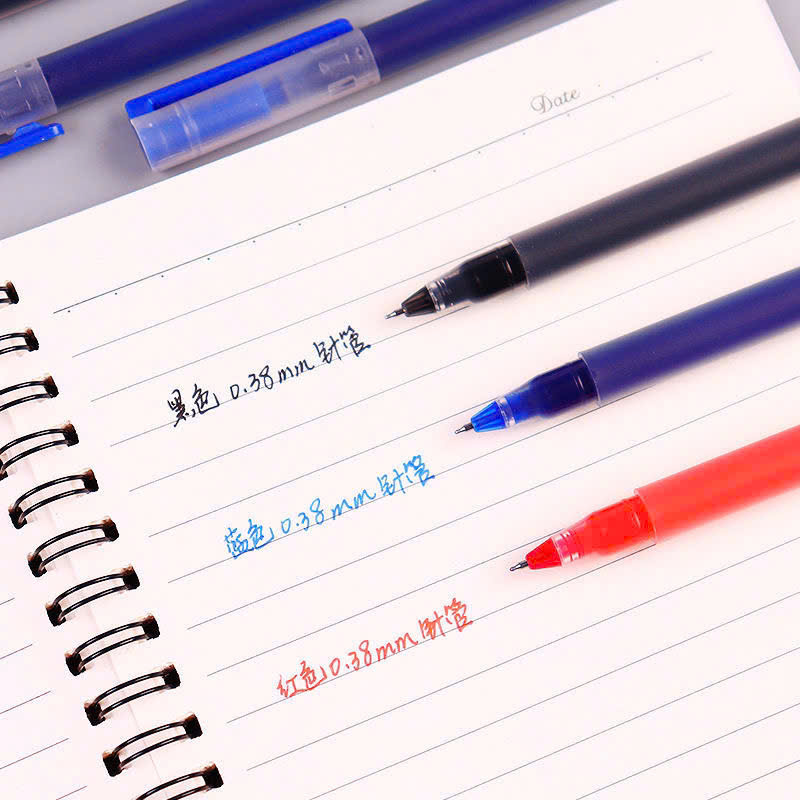 Date
黑色 0.38mm 针管
蓝色 0.38mm 针管
红色 0.38mm 针管